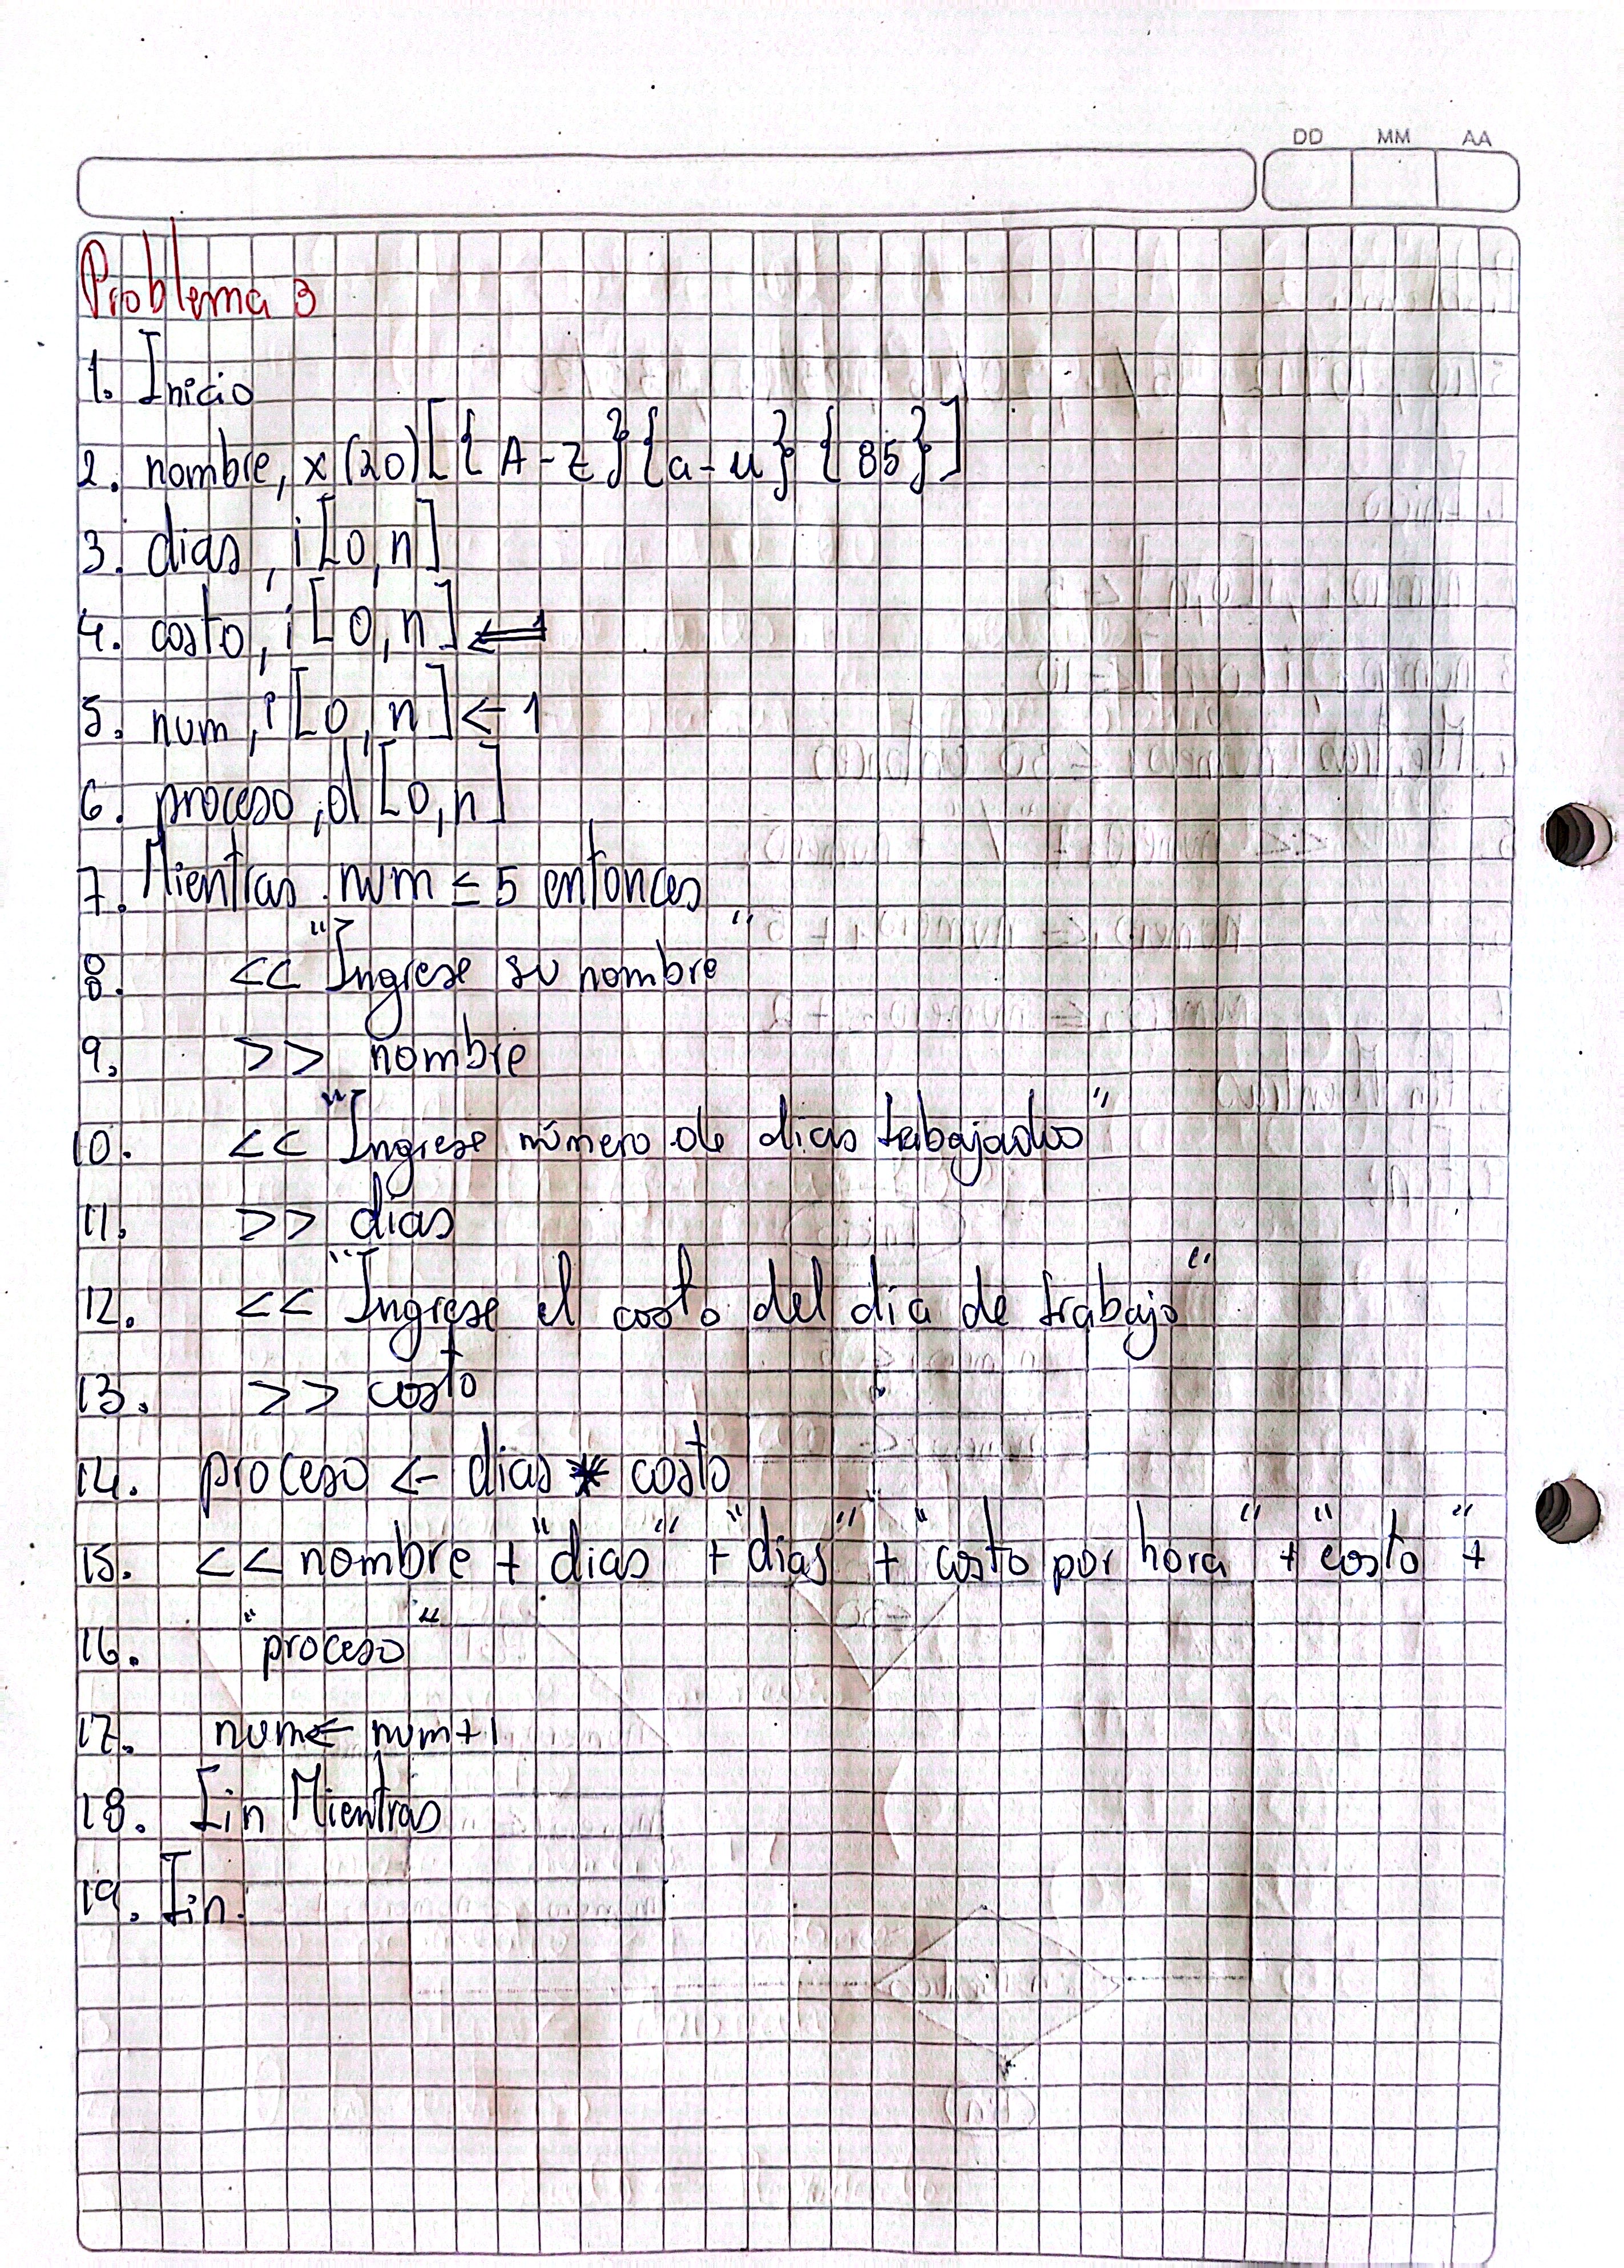 DD MM AA
Problema 3
1. Inicio
2. nombre, x (20) [ { A - Z } { a - u } { 85 } ]
3. dias, i [0, n]
4. costo, i [0, n]
5. num, i [0, n] ← 1
6. proceso, d [0, n]
7. Mientras num ≤ 5 entonces
8. << "Ingrese su nombre"
9. >> nombre
10. << "Ingrese número de dias trabajados"
11. >> dias
12. << "Ingrese el costo del dia de trabajo"
13. >> costo
14. proceso ← dias * costo
15. << nombre + "dias" + "dias" + "costo por hora" + "costo" +
16. "proceso"
17. num ← num + 1
18. Fin Mientras
19. Fin.